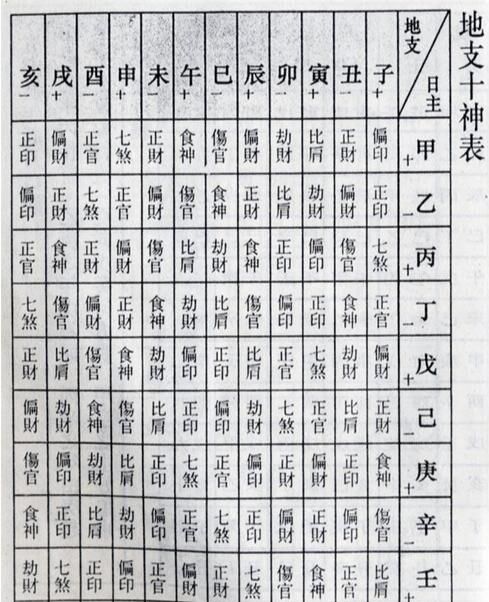 地支十神表
日主 地支 子+ 丑- 寅+ 卯- 辰+ 巳- 午+ 未- 申+ 酉- 戌+ 亥-
甲+ 偏印 正財 比肩 劫財 偏財 傷官 食神 正財 七煞 正官 偏財 正印
乙- 正印 偏財 劫財 比肩 正財 食神 傷官 偏財 正官 七煞 正財 偏印
丙+ 七煞 傷官 偏印 正印 食神 劫財 比肩 傷官 偏財 正財 食神 正官
丁- 正官 食神 正印 偏印 傷官 比肩 劫財 食神 正財 偏財 傷官 七煞
戊+ 偏財 劫財 七煞 正官 比肩 正印 偏印 劫財 食神 傷官 比肩 正財
己- 正財 比肩 正官 七煞 劫財 偏印 正印 比肩 傷官 食神 劫財 偏財
庚+ 食神 正印 偏財 正財 偏印 正官 七煞 正印 比肩 劫財 偏印 傷官
辛- 傷官 偏印 正財 偏財 正印 七煞 正官 偏印 劫財 比肩 正印 食神
壬+ 比肩 正官 食神 傷官 七煞 正財 偏財 正官 偏印 正印 七煞 劫財